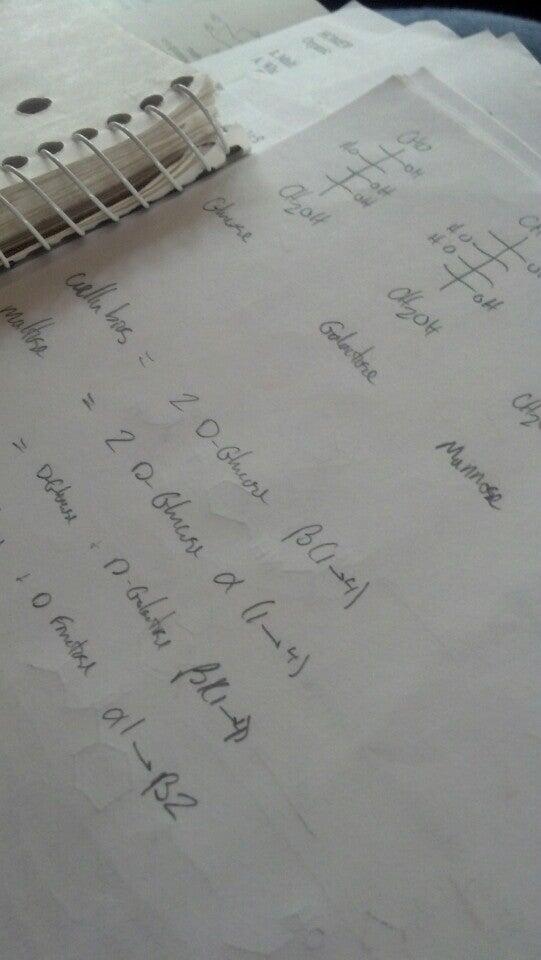 CHO
HO
OH
OH
OH
CH2OH
Glucose
HO
HO
OH
CH2OH
Galactose
Mannose
= 2 D-Glucose β(1→4)
Maltose = 2 D-Glucose α (1→4)
= D-Glucose + D-Galactose β(1→4)
+ D Fructose α1→β2